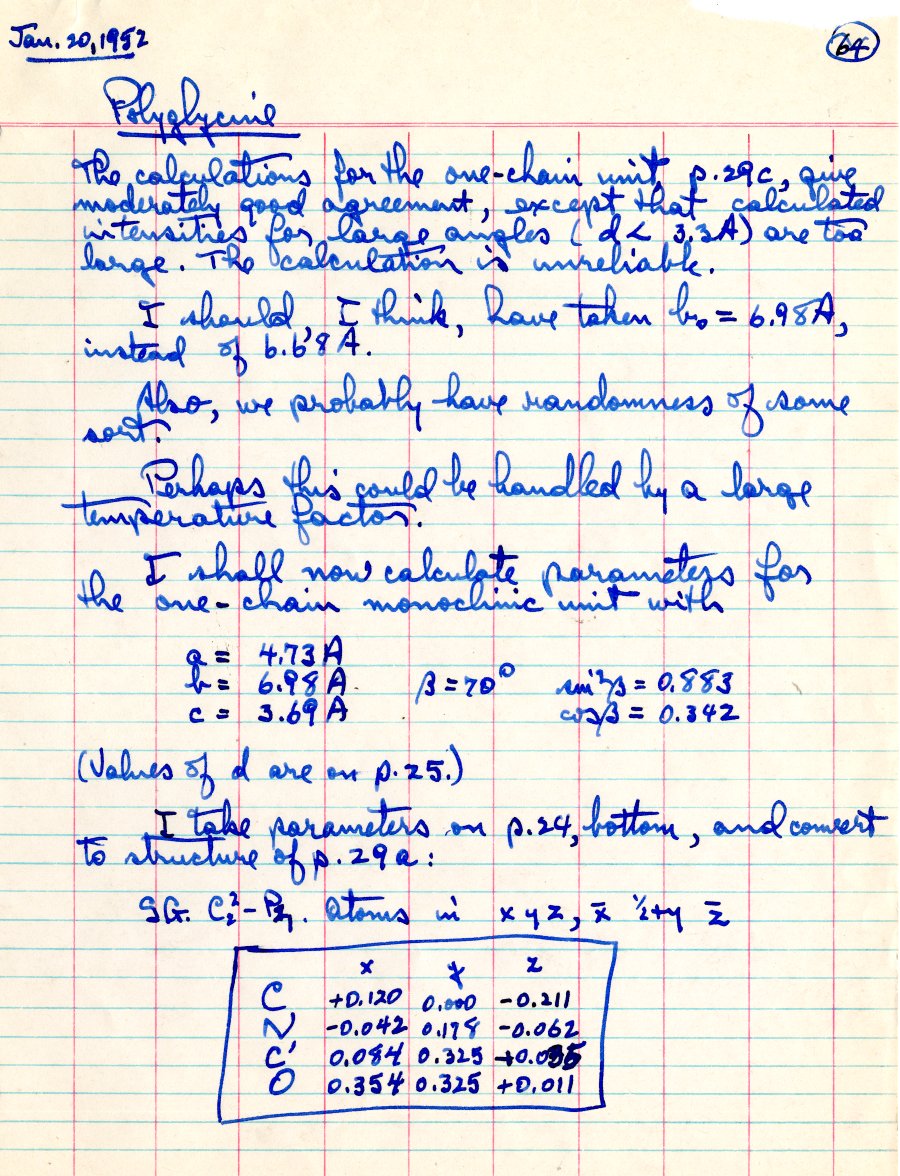 Jan. 20, 1952
64
Polyglycine
The calculations for the one-chain unit, p. 29c, give
moderately good agreement, except that calculated
intensities for large angles (d < 3.3A) are too
large. The calculation is unreliable.
I should, I think, have taken b₀ = 6.98A,
instead of 6.68A.
Also, we probably have randomness of some
sort.
Perhaps this could be handled by a large
temperature factor.
I shall now calculate parameters for
the one-chain monoclinic unit with
a = 4.73A
b = 6.98A β = 70° sin²β = 0.883
c = 3.69A cosβ = 0.342
(Values of d are on p. 25.)
I take parameters on p. 24, bottom, and convert
to structure of p. 29a:
SG. C₂² - P2₁. Atoms in x y z, x̄ ½+y z̄
x y z
C +0.120 0.000 -0.211
N -0.042 0.178 -0.062
C' 0.084 0.325
O 0.354 0.325 +0.011